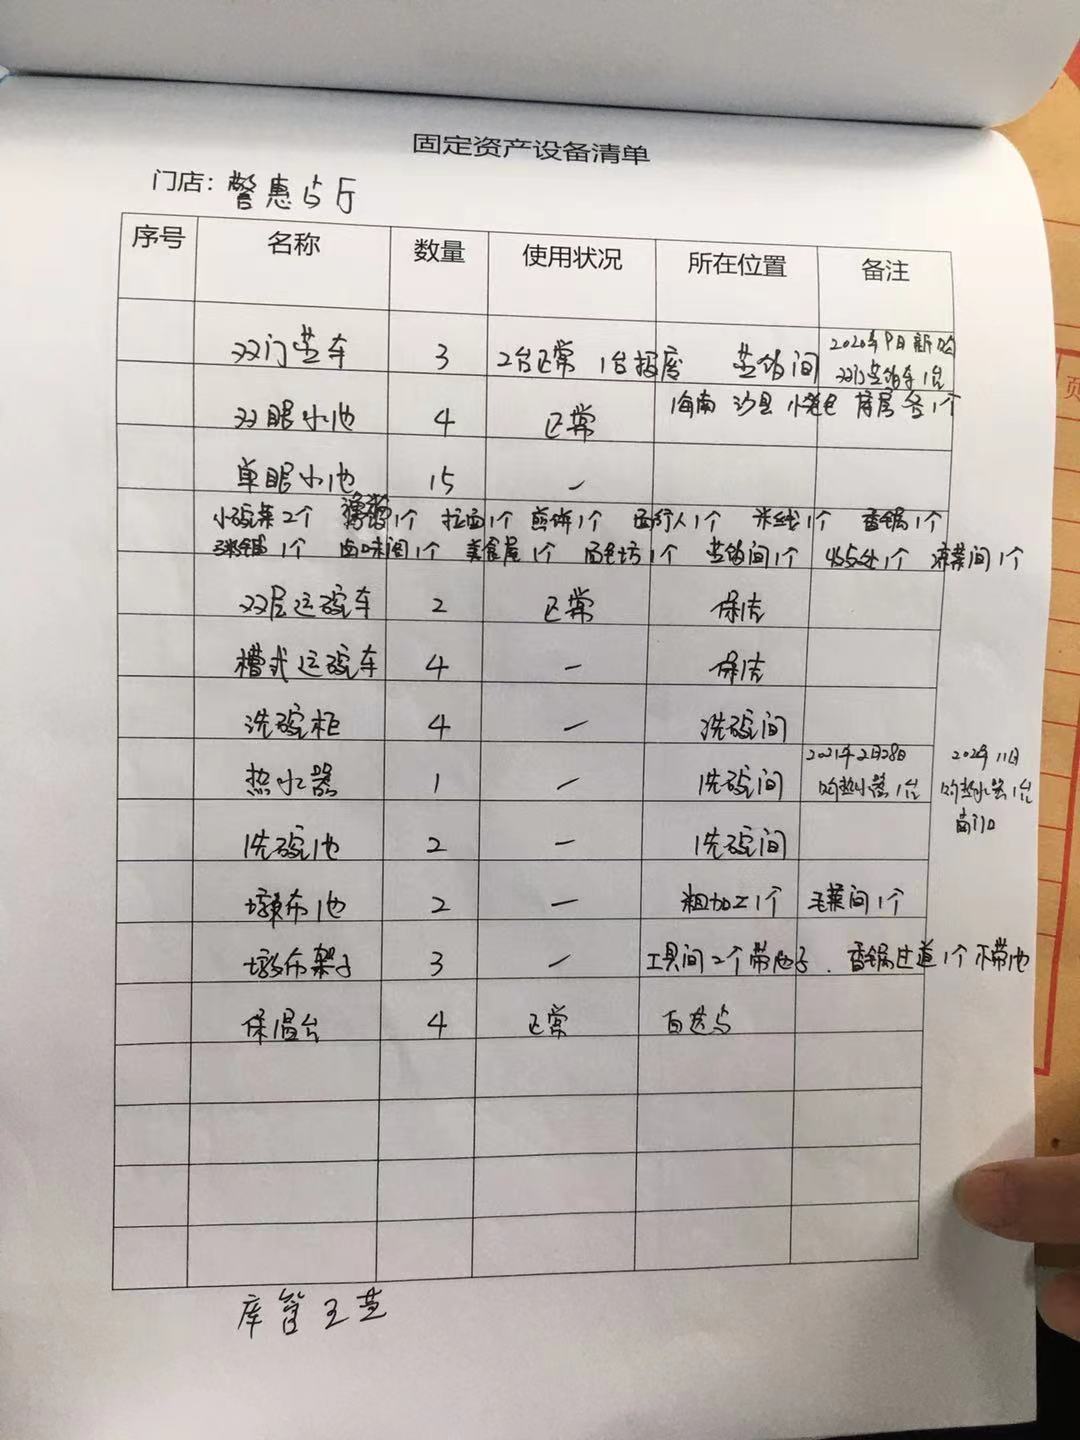 固定资产设备清单
门店：警惠占厅
序号 名称 数量 使用状况 所在位置 备注
双门蒸车 3 2台正常 1台报废 蒸饭间 2020年9月新加双门蒸饭车1台
双眼水池 4 正常 海南 沙县 小笼包 各1个
单眼水池 15 —
小碗菜2个 1个 拉面1个 煎饼1个 西行人1个 米线1个 香锅1个
1个 卤味间1个 美食屋1个 面包坊1个 蒸饭间1个 收点处1个 凉菜间1个
双层运碗车 2 正常 保洁
槽式运碗车 4 — 保洁
洗碗柜 4 — 洗碗间
热水器 1 — 洗碗间 2021年2月28日购热水器1台 11月购热水器1台南门口
洗碗池 2 — 洗碗间
墩布池 2 — 粗加工1个 毛菜间1个
墩布架子 3 — 工具间2个带池子、香锅过道1个不带池
保温台 4 正常 自选占
库管 王芝